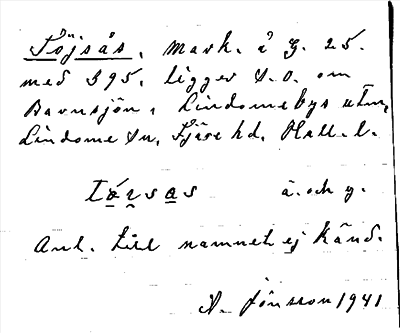 Töjsås, mark. å g. 25.
med 395, ligger s.o. om
Barnsjön, Lindomebys utm,
Lindome sn, Fjäre hd, Hall. l.
tɵ́i̯sas ä. och y.
Anl. till namnet ej känd.
A. Jönsson 1941